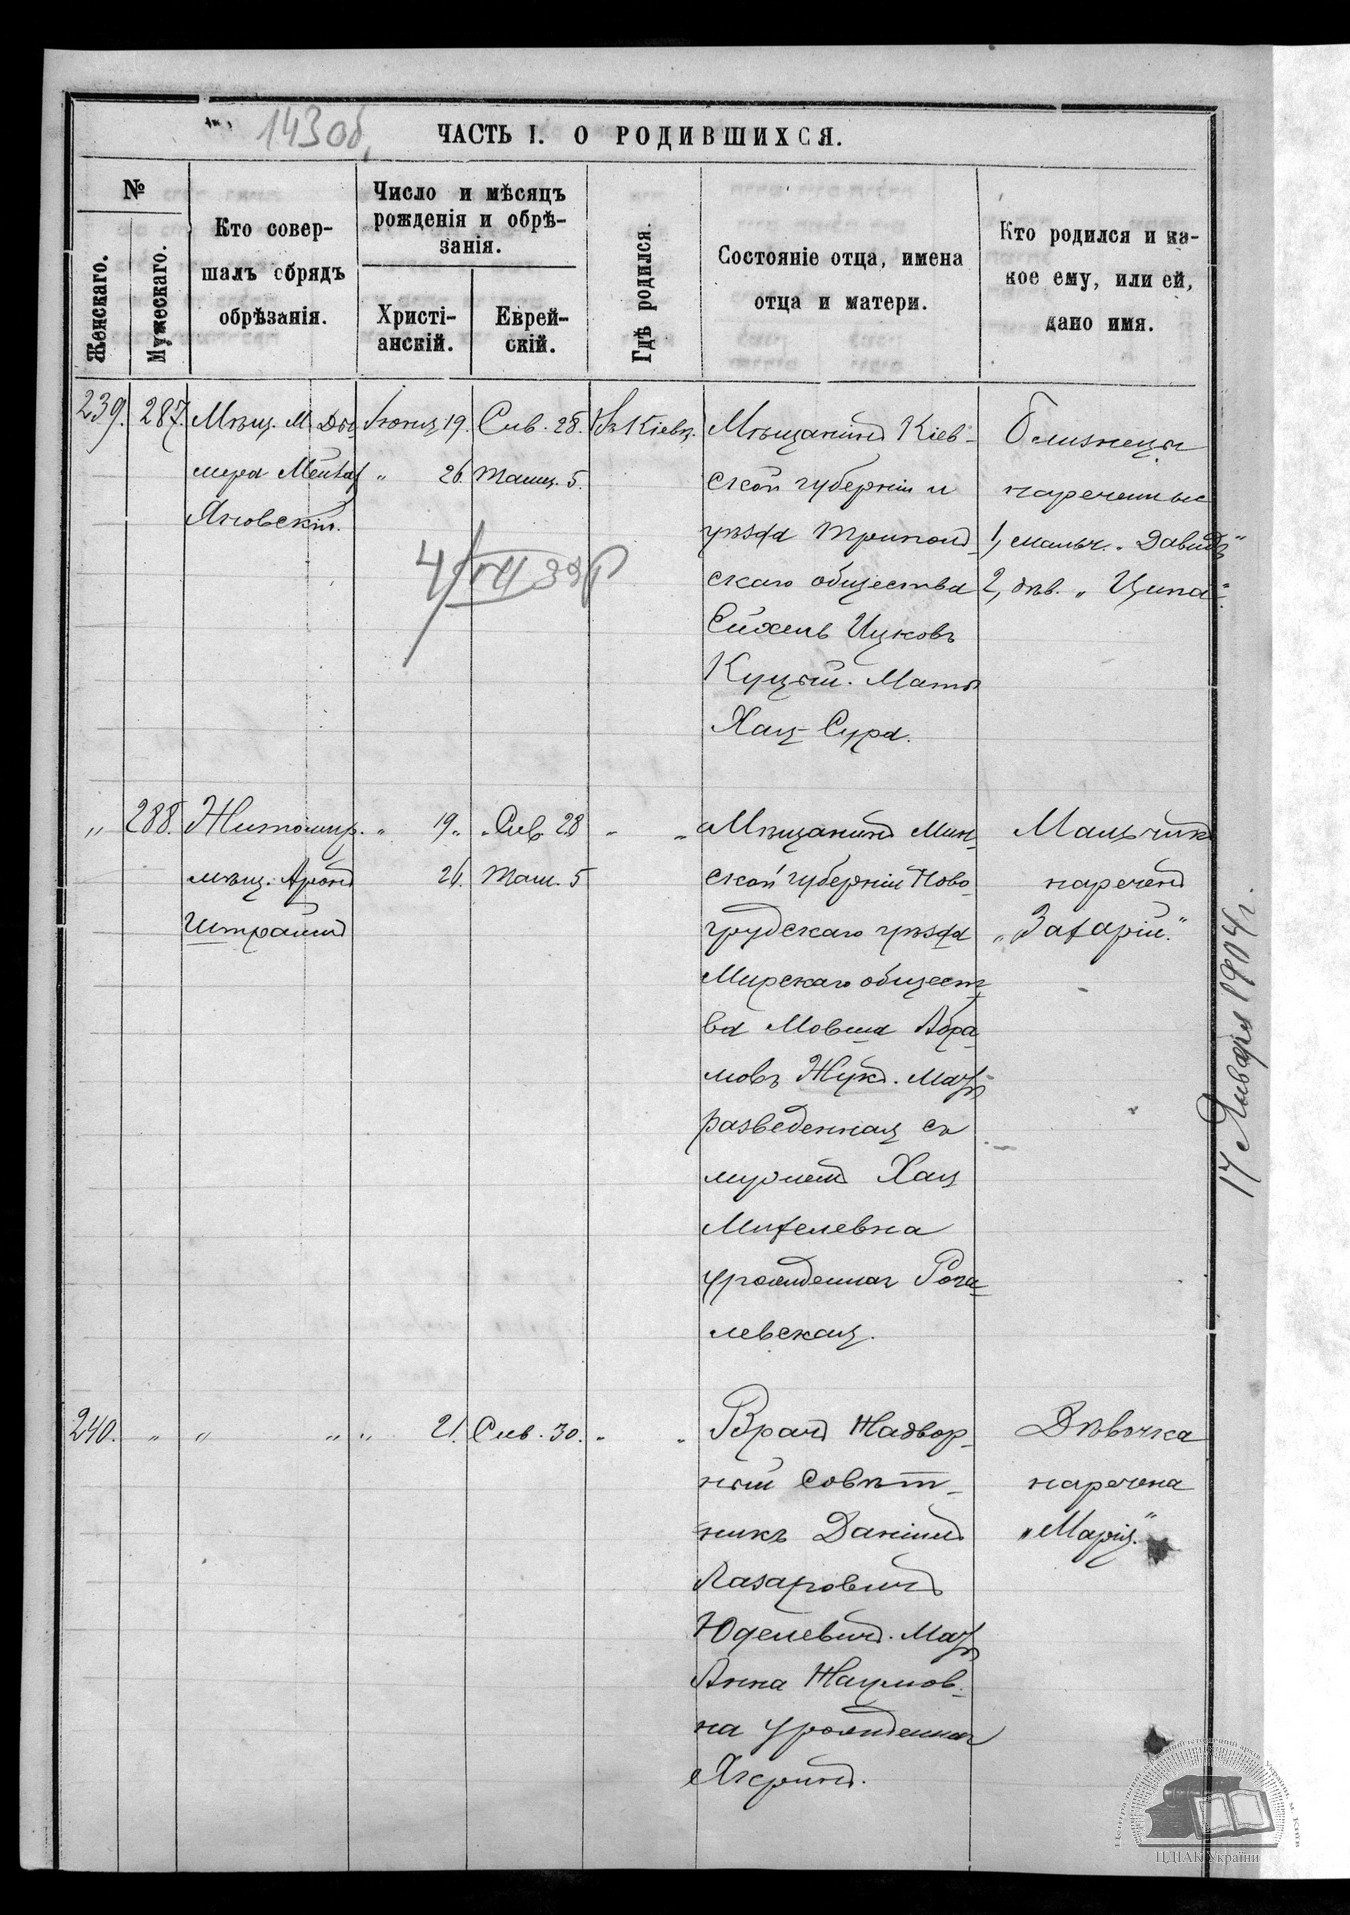 143 об.
ЧАСТЬ I. О РОДИВШИХСЯ.
№
Женскаго.
Мужескаго.
Кто совер-
шалъ обрядъ
обрѣзанія.
Число и мѣсяцъ
рожденія и обрѣ-
занія.
Христі-
анскій.
Еврей-
скій.
Гдѣ родился.
Состояніе отца, имена
отца и матери.
Кто родился и ка-
кое ему, или ей,
дано имя.
239. 287. Мѣщ. м. Ды-
мера
Яновскій.
Іюня 19. Сив. 28. Въ Кіевѣ.
" 26. Тамуз. 5.
Мѣщанинъ Кіев-
ской губерніи и
уѣзда Трипол-
скаго общества
Сихель Ицковъ
Куцый. Мать
Хая-Сура.
Близнецы
нареченные
1, мальч. "Давидъ"
2, дѣв. "Ципа".
" 288. Житомир.
мѣщ. Аронъ
Штраймъ
" 19. Сив. 28 " "
26. Там. 5
Мѣщанинъ Мин-
ской губерніи Ново-
грудскаго уѣзда
Мирскаго общест-
ва Мовша Абра-
мовъ Жукъ. Мать
разведенная съ
мужемъ Хая
Михелевна
урожденная
левская.
Мальчикъ
нареченъ
"Захарій".
240. " " " " 21. Сив. 30. " "
Врачъ Надвор-
ный Совѣт-
никъ Даніилъ
Лазаровичъ
Юделевичъ. Мать
Анна Наумов-
на урожденная
Дѣвочка
наречена
"Марія".
17 Января 1904 г.
ЦДІАК України